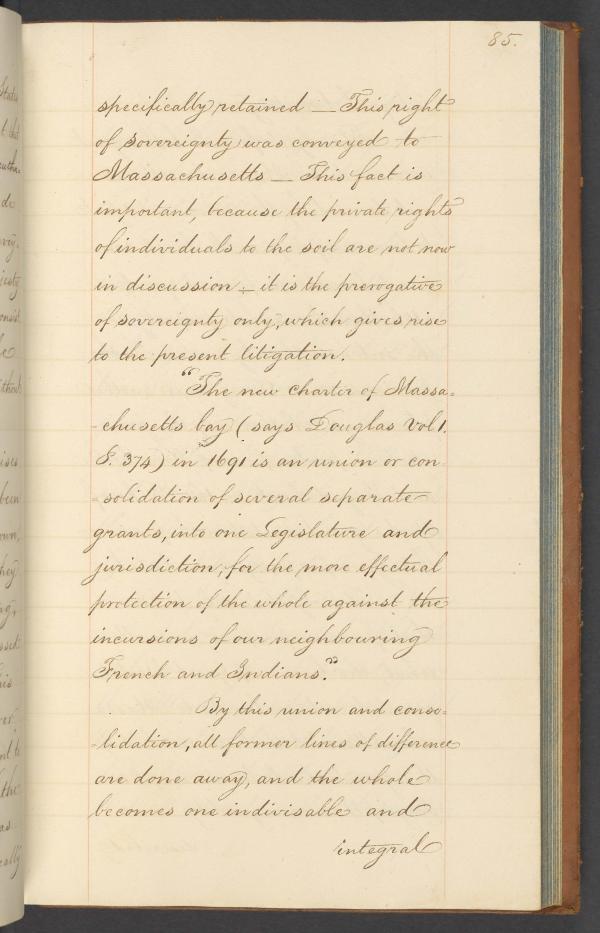 85.
specifically retained — This right
of sovereignty was conveyed to
Massachusetts — This fact is
important, because the private rights
of individuals to the soil are not now
in discussion — it is the prerogative
of sovereignty only, which gives rise
to the present litigation.
"The new charter of Massa-
-chusetts bay (says Douglas Vol 1.
P. 374) in 1691 is an union or con
-solidation of several separate
grants, into one Legislature and
jurisdiction, for the more effectual
protection of the whole against the
incursions of our neighbouring
French and Indians."
By this union and conso-
-lidation, all former lines of difference
are done away, and the whole
becomes one indivisable and
integral